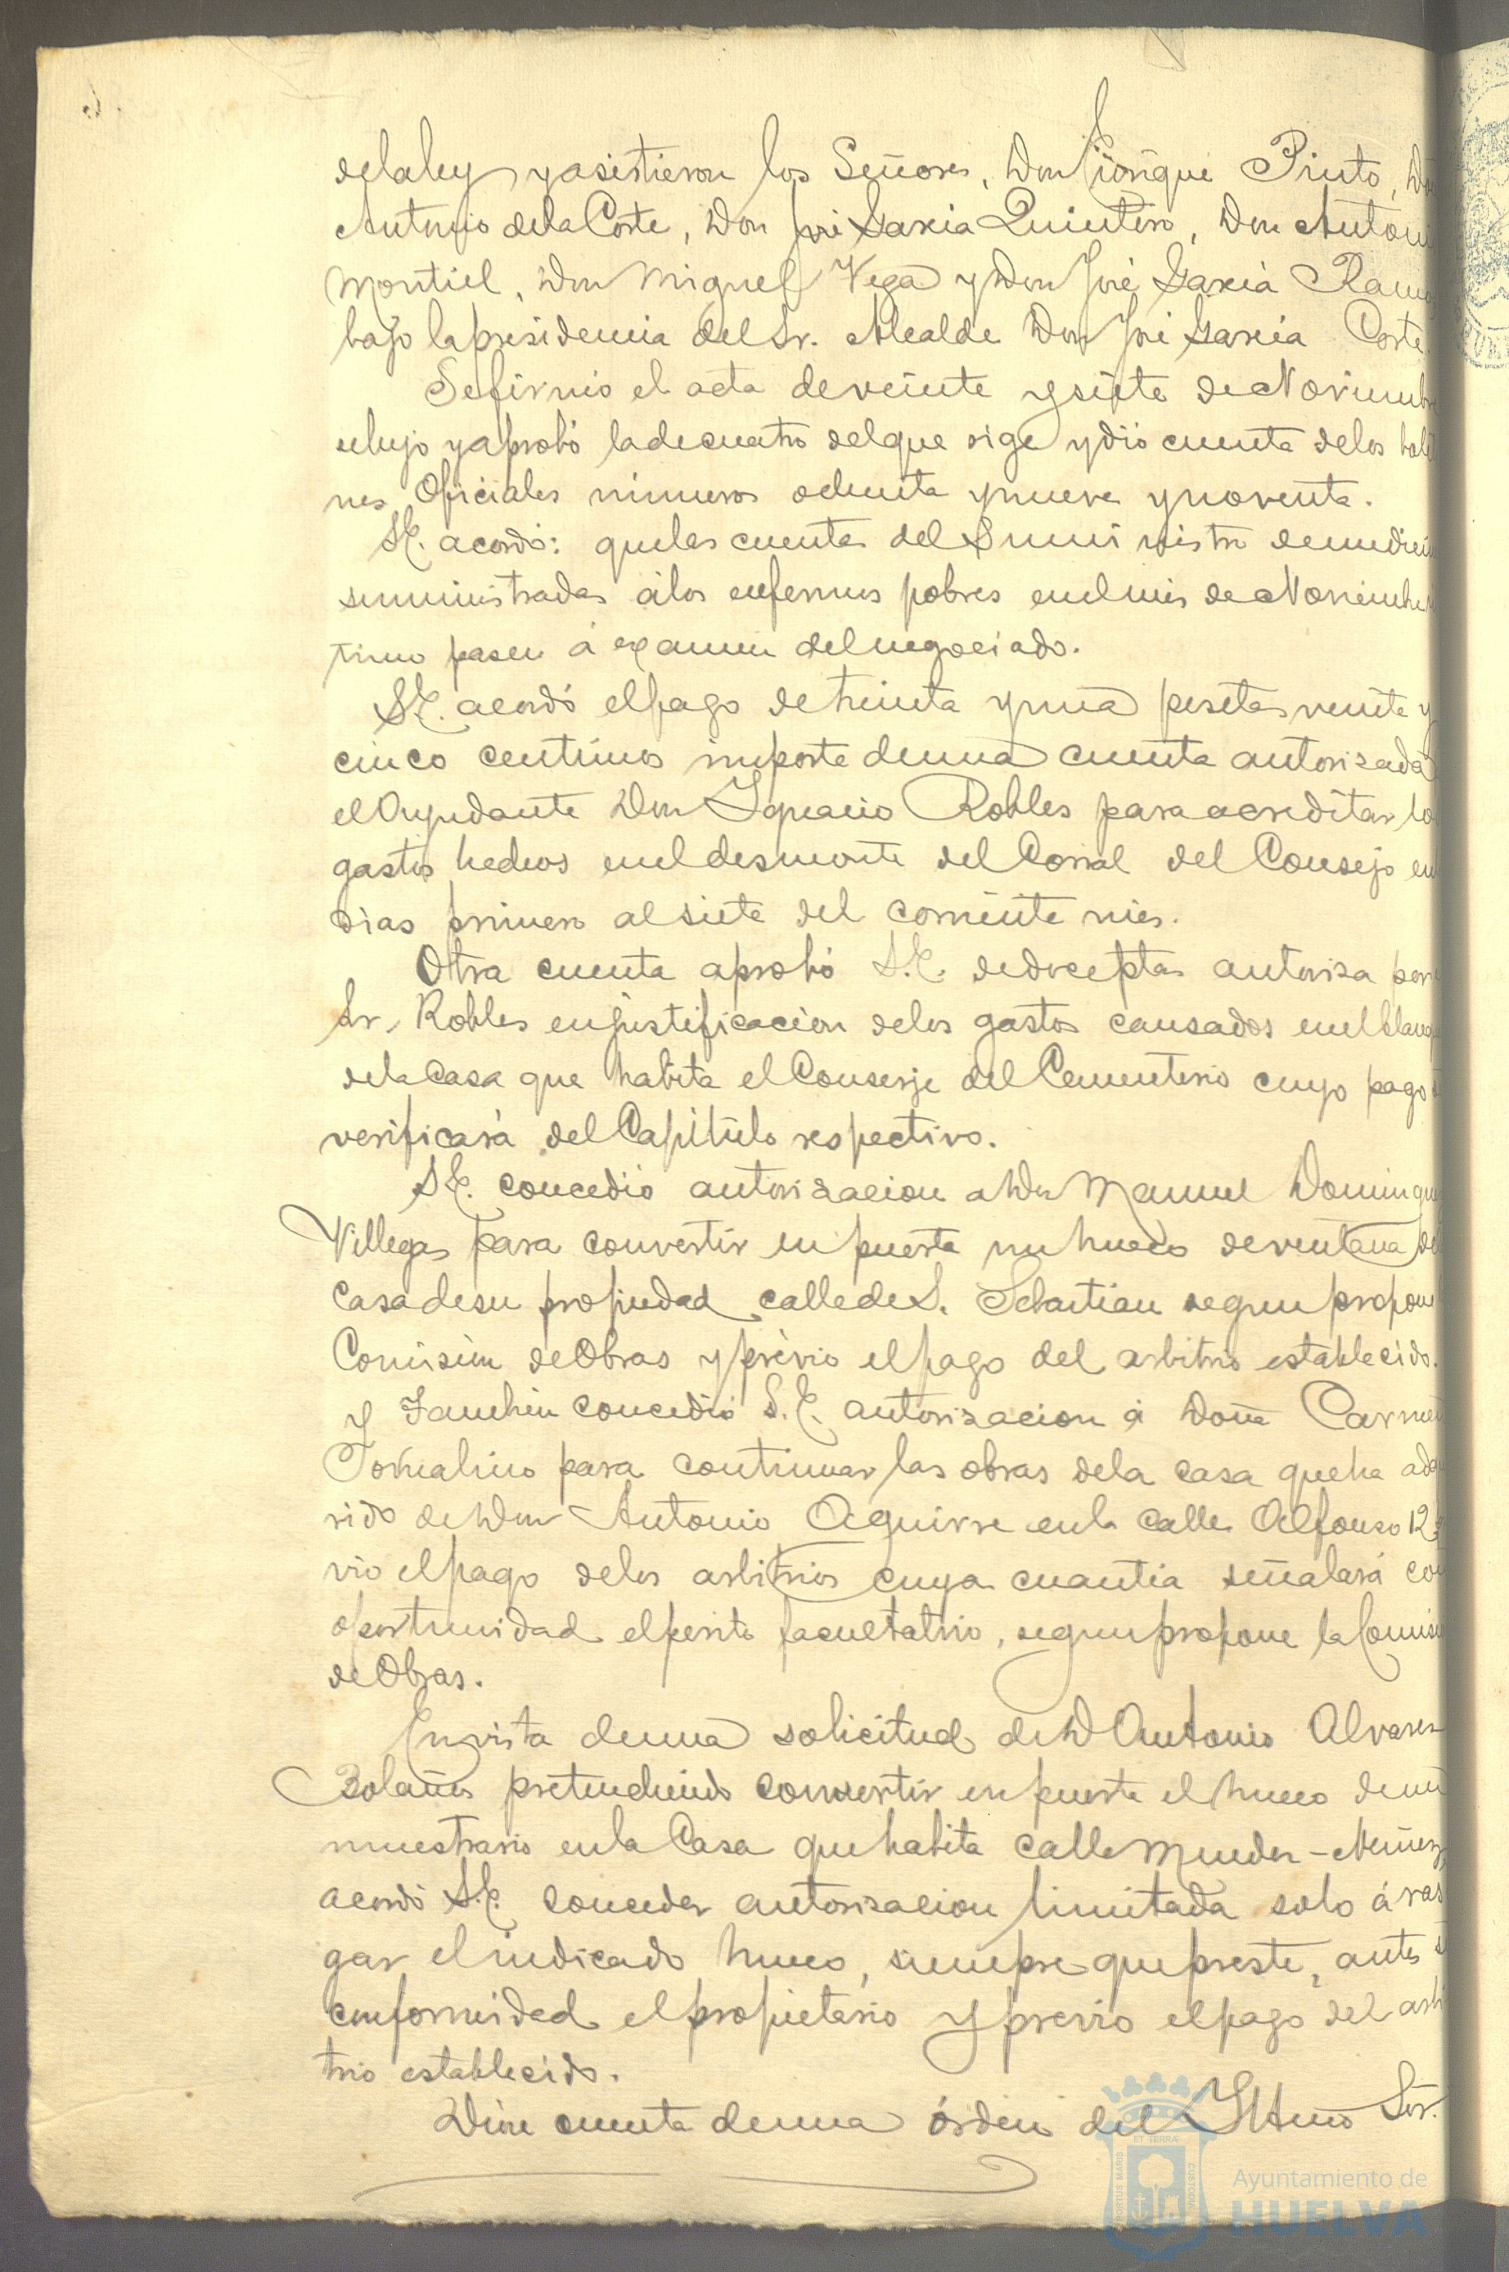 dela ley y asistieron los Señores, Don Enrique Pinto, Don
Antonio dela Corte, Don José Garcia Quintero, Don Antoni
Montiel, Don Miguel Vega y Don José Garcia Ramo
bajo la presidencia del Sr. Alcalde Don José Garcia Corte.
Se firmó el acta de veinte y siete de Noviembre
y aprobó la de cuatro del que rige y dió cuenta delos bole
nes Oficiales números ochenta y nueve y noventa.
S.E. acordó: que las cuentas del Suministro de medicin
suministradas á los enfermos pobres en el mes de Noviembre
timo pasen á examen del negociado.
S.E. acordó el pago de treinta y una pesetas veinte y
cinco centimos importe de una cuenta autorizada
el Ayudante Don Ygnacio Robles para acreditar lo
gastos hechos en el desmonte del Corral del Consejo en
dias primero al siete del corriente mes.
Otra cuenta aprobó S.E. de doce ptas autoriza por
Sr. Robles en justificacion delos gastos causados en el blanq
dela Casa que habita el Conserje del Cementerio cuyo pago
verificará del Capitulo respectivo.
S.E. concedió autorizacion a Don Manuel Domingu
Villegas para convertir en puerta un hueco de ventana de
casa de su propiedad calle de S. Sebastian segun propone
Comision de Obras y prévio el pago del arbitrio establecido.
Y Tambien concedió S.E. autorizacion á Doña Carmen
para continuar las obras dela casa que ha adq
rido de Don Antonio Aguirre en la calle Alfonso 12
vio el pago delos arbitrios cuya cuantia señalará con
oportunidad el perito facultativo, segun propone la Comisi
de Obras.
En vista de una solicitud de D Antonio Alvarez
Bolaños pretendiendo convertir en puerta el hueco de un
muestrario en la Casa que habita calle Mendez-Nuñez,
acordó S.E. conceder autorizacion limitada solo á ras
gar el indicado hueco, siempre que preste, antes
conformidad el propietario y previo el pago del arbi
trio establecido.
Dióse cuenta de una órden del Yltmo Sor.
ET TERRAE
Ayuntamiento de
HUELVA